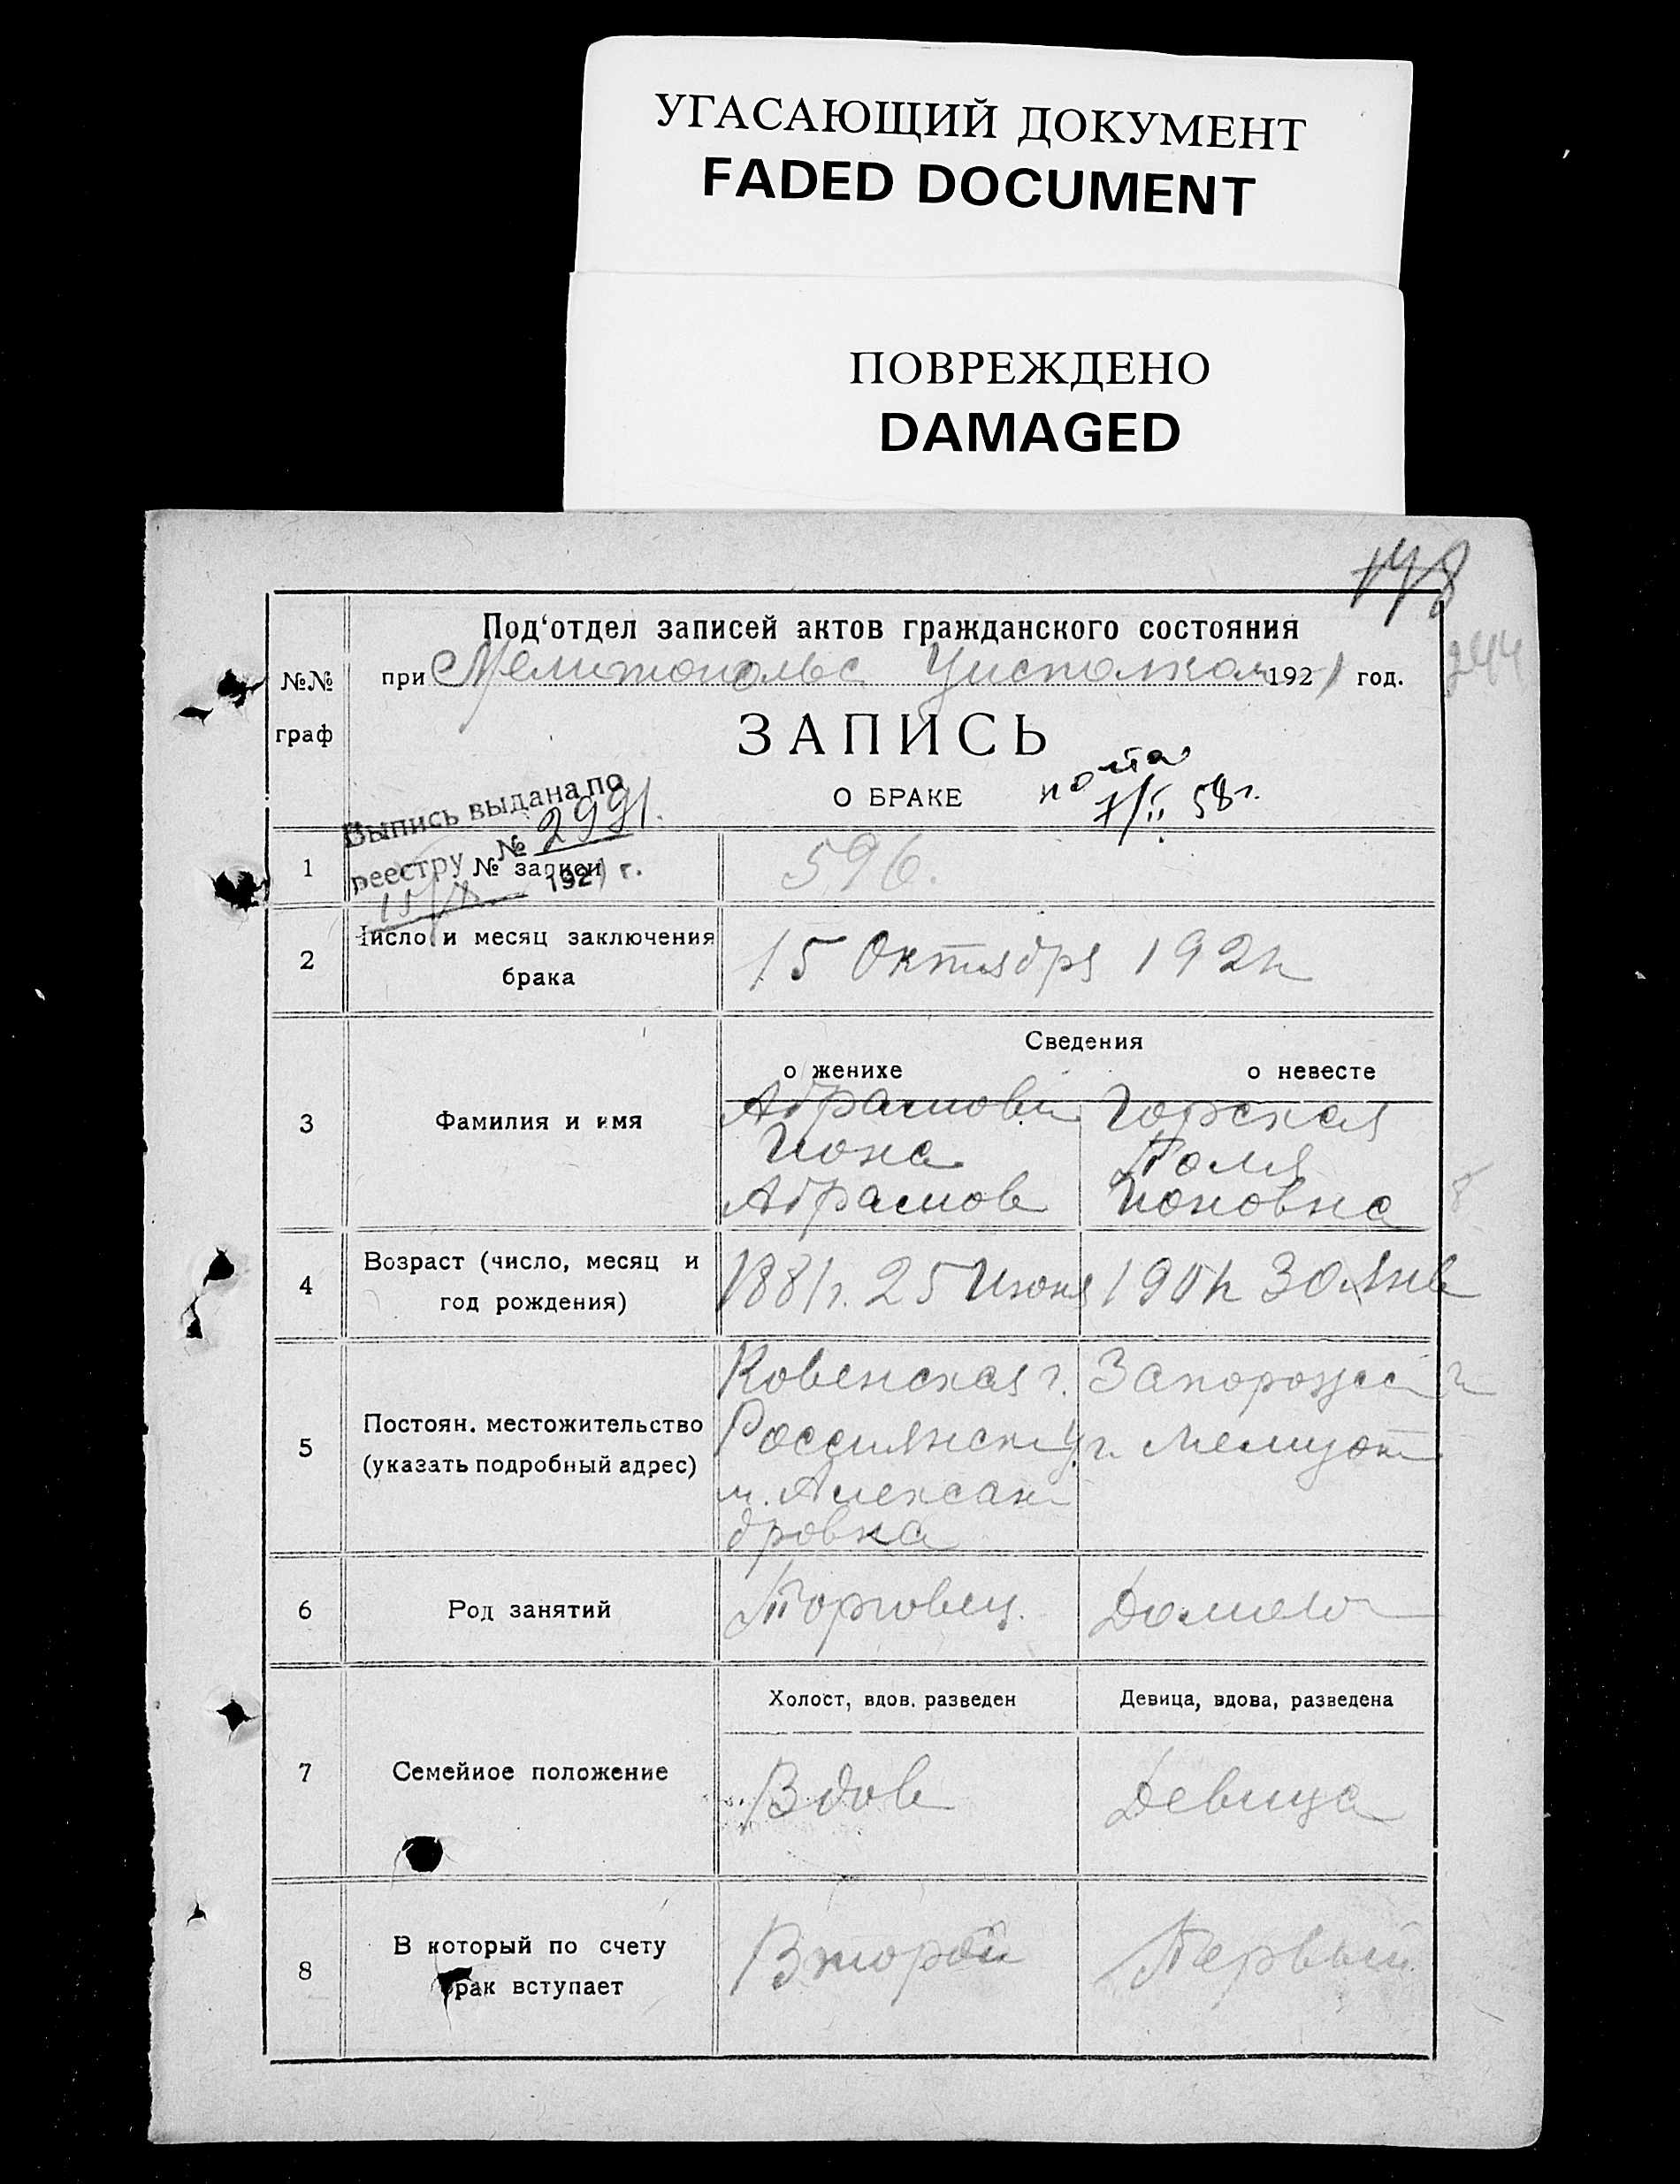 УГАСАЮЩИЙ ДОКУМЕНТ
FADED DOCUMENT
ПОВРЕЖДЕНО
DAMAGED
178
244
Под‘отдел записей актов гражданского состояния
№№
граф
при Мелитопольс Уисполком 1921 год.
ЗАПИСЬ
О БРАКЕ
58 г.
Выпись выдана по
реестру № 2991.
15/X 1921 г.
1
№ записи
596.
2
Число и месяц заключения
брака
15 Октября 192
Сведения
о женихе
о невесте
3
Фамилия и имя
Абрамови
Иона
Абрамов
Горская
Поля
Ионовна
4
Возраст (число, месяц и
год рождения)
1881 г. 25 Июня
30 Янв
5
Постоян. местожительство
(указать подробный адрес)
Ковенская г.
Россиянск у.
м. Алексан
дровка
Запорожс г
г. Мелитоп
6
Род занятий
Торговец.
Домаш
7
Семейное положение
Холост, вдов. разведен
Девица, вдова, разведена
Вдов
Девица
8
В который по счету
брак вступает
Второй
Первый